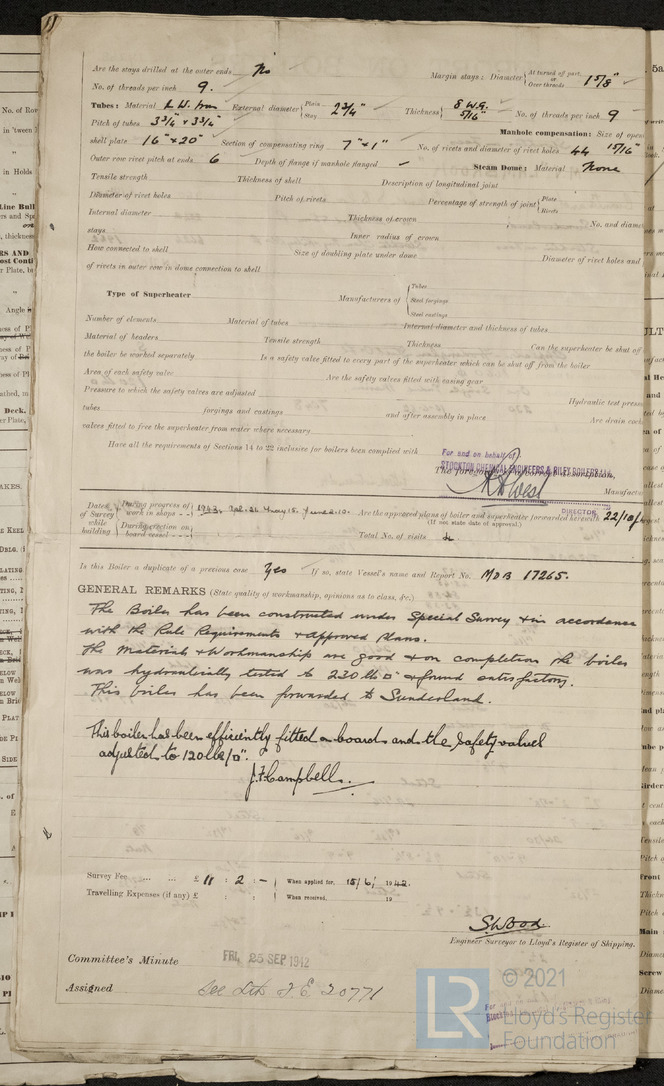 Are the stays drilled at the outer ends No Margin stays: Diameter { At turned off part, or Over threads 1 5/8"
No. of threads per inch 9.
Tubes: Material L.W. Iron External diameter { Plain Stay 2 3/4" Thickness { 8 W.G. 5/16" No. of threads per inch 9
Pitch of tubes 3 3/4" x 3 3/4" Manhole compensation: Size of
shell plate 16" x 20" Section of compensating ring 7" x 1" No. of rivets and diameter of rivet holes 44 15/16"
Outer row rivet pitch at ends 6 Depth of flange if manhole flanged Steam Dome: Material None
Tensile strength Thickness of shell Description of longitudinal joint
Diameter of rivet holes Pitch of rivets Percentage of strength of joint { Plate Rivets
Internal diameter Thickness of crown No. and
stays Inner radius of crown
How connected to shell Size of doubling plate under dome Diameter of rivet holes and
of rivets in outer row in dome connection to shell
Type of Superheater Manufacturers of { Tubes Steel forgings Steel castings
Number of elements Material of tubes Internal diameter and thickness of tubes
Material of headers Tensile strength Thickness Can the superheater be shut off
the boiler be worked separately Is a safety valve fitted to every part of the superheater which can be shut off from the boiler
Area of each safety valve Are the safety valves fitted with easing gear
Pressure to which the safety valves are adjusted Hydraulic test
tubes forgings and castings and after assembly in place Are drain
valves fitted to free the superheater from water where necessary
Have all the requirements of Sections 14 to 22 inclusive for boilers been complied with
For and on behalf of
STOCKTON CHEMICAL ENGINEERS & RILEY BOILERS
The foregoing is a correct description,
West
DIRECTOR
Dates of Survey while building { During progress of work in shops - - During erection on board vessel - - - Are the approved plans of boiler and superheater forwarded herewith
(If not state date of approval.)
Total No. of visits 4
Is this Boiler a duplicate of a previous case Yes If so, state Vessel's name and Report No. MDB 17265.
GENERAL REMARKS (State quality of workmanship, opinions as to class, &c.)
The Boiler has been constructed under Special Survey & in accordance
with the Rule Requirements & approved Plans.
The materials & Workmanship are good & on completion the boiler
was hydraulically tested to 230 lbs □" & found satisfactory.
This boiler has been forwarded to Sunderland.
This boiler has been efficiently fitted on board and the safety valves
adjusted to 120 lbs/□".
J.F. Campbell.
Survey Fee ... ... £ 11 : 2 : - When applied for, 15/6/ 1942.
Travelling Expenses (if any) £ : : When received, 19
S. Wood
Engineer Surveyor to Lloyd's Register of Shipping.
Committee's Minute FRI. 25 SEP 1942
Assigned See F.E. 20771
LR © 2021
Lloyd's Register
Foundation